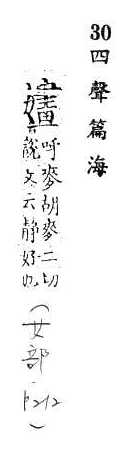 30 四聲篇海
嫿
呼麥胡麥二切
說文云静好也
(女部 p212)